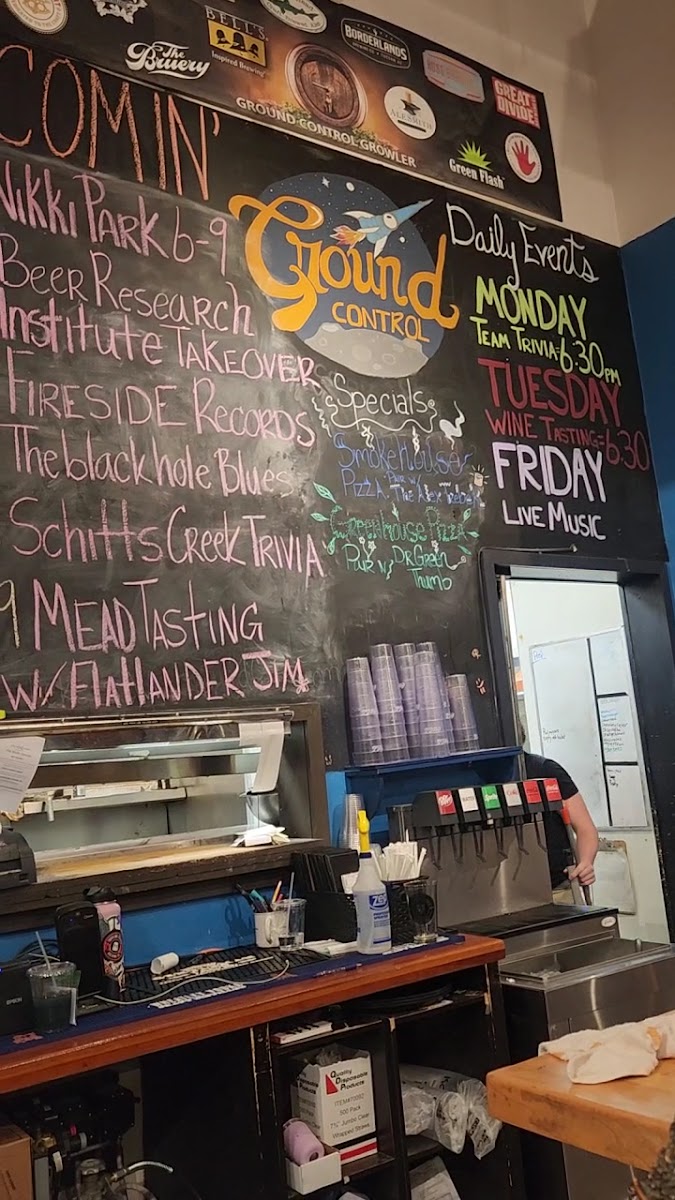 BELL'S
Inspired Brewing
The Bruery
BORDERLANDS
GREAT DIVIDE
ALESMITH
Green Flash
GROUND CONTROL GROWLER
COMIN'
Nikki Park 6-9
Beer Research
Institute TAKEOVER
FIRESIDE Records
The black hole Blues
Schitts Creek TRIVIA
9 MEAD TASTING
W/ FlatLANDER JIM
Ground
CONTROL
Specials
Smokehouse
Pizza Pair w/
The
Greenhouse Pizza
Pair w/ Dr Green
Thumb
Daily Events
MONDAY
TEAM TRIVIA-6:30PM
TUESDAY
WINE TASTING-6:30
FRIDAY
LIVE MUSIC
ZEP
EPSON
Quality
Disposable
Products
500 Pack
7¾" Jumbo Clear
Wrapped Straws